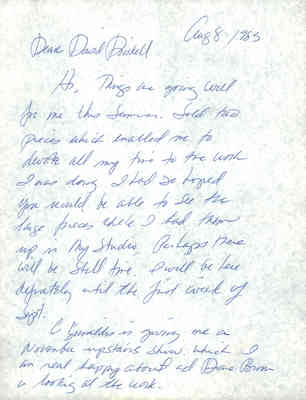 Aug 8 - 1983
Dear David Driskell
Hi, Things are going well
for me this Summer. Sold two
pieces which enabled me to
devote all my time to the work
I was doing I had so hoped
you would be able to see the
large pieces while I had them
up in My Studio. Perhaps there
will be still time. I will be here
definately until the first week of
Sept.
C Grimaldis is giving me a
November upstairs show. which I
am real happy about ad
is looking at the work.